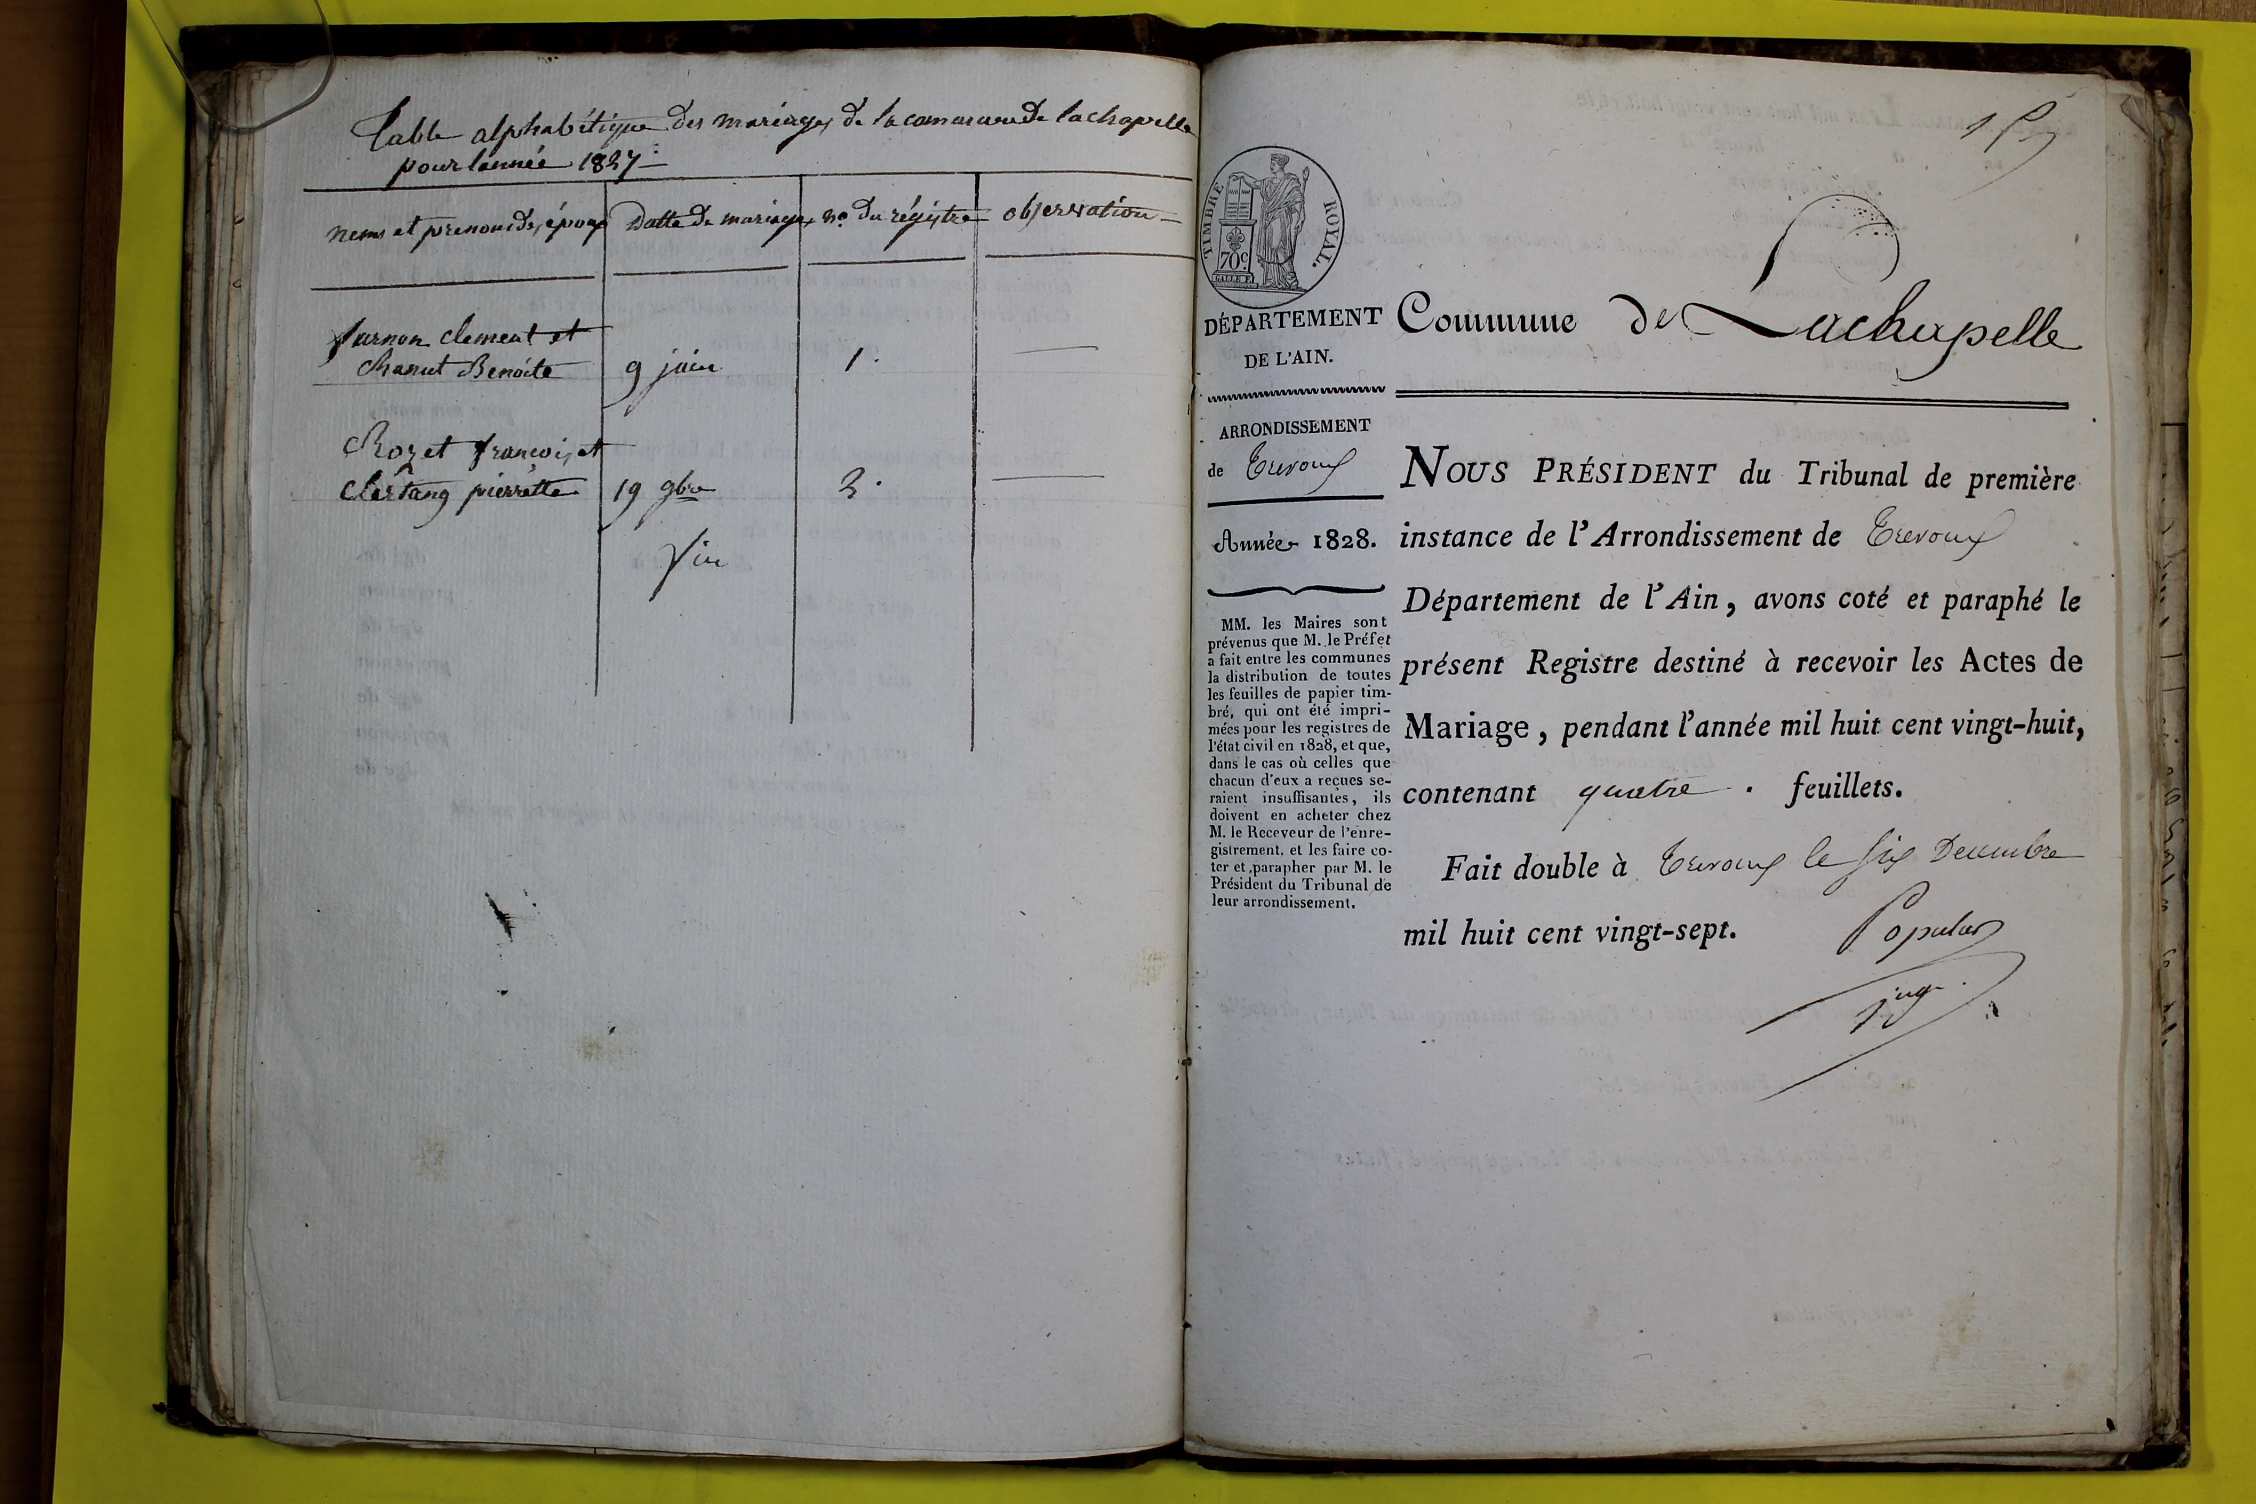 Table alphabétique des mariages de la commune de lachapelle
pour lannée 1827
noms et prenoms des époux
Datte de mariages
no. du régistre
observation
furnon clement et
Chanut Benoite
9 juin
1.
Rozet francois et
clertang pierrette
19 9bre
2.
fin
1
TIMBRE ROYAL.
70c.
DÉPARTEMENT
DE L'AIN.
ARRONDISSEMENT
de Trevoux
Année 1828.
MM. les Maires sont
prévenus que M. le Préfet
a fait entre les communes
la distribution de toutes
les feuilles de papier tim-
bré, qui ont été impri-
mées pour les registres de
l'état civil en 1828, et que,
dans le cas où celles que
chacun d'eux a reçues se-
raient insuffisantes, ils
doivent en acheter chez
M. le Receveur de l'enre-
gistrement, et les faire co-
ter et parapher par M. le
Président du Tribunal de
leur arrondissement.
Commune de Lachapelle
NOUS PRÉSIDENT du Tribunal de première
instance de l'Arrondissement de Trevoux
Département de l'Ain, avons coté et paraphé le
présent Registre destiné à recevoir les Actes de
Mariage, pendant l'année mil huit cent vingt-huit,
contenant quatre. feuillets.
Fait double à Trevoux le six Decembre
mil huit cent vingt-sept.
Populus
juge